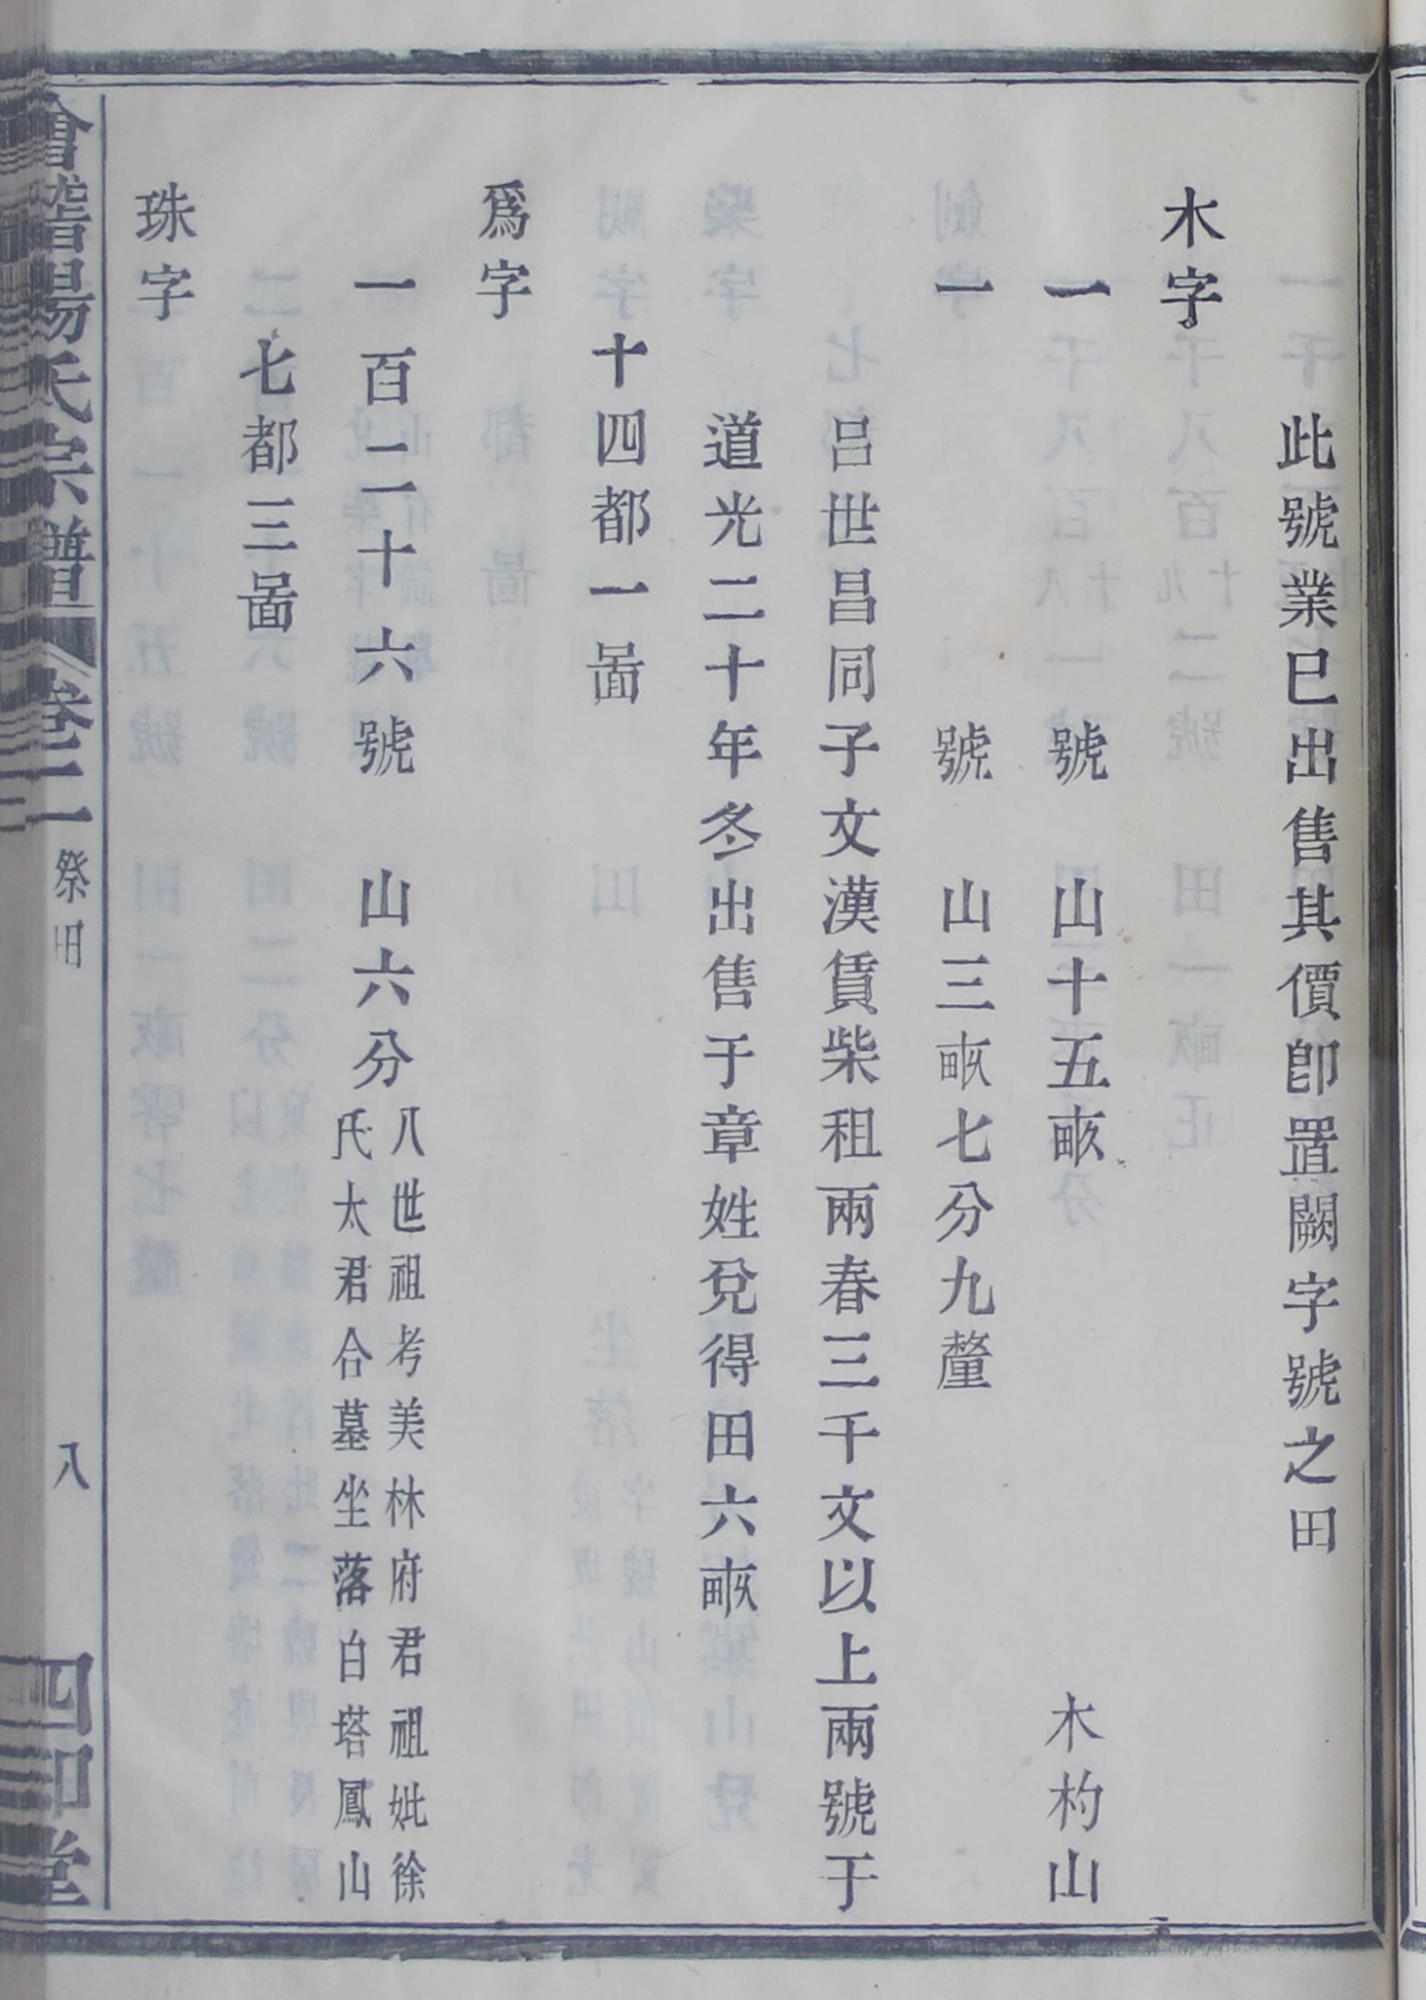 此號業已出售其價卽置闕字號之田
木字
一 號 山十五畝 木杓山
一 號 山三畝七分九釐
呂世昌同子文漢賃柴租兩春三千文以上兩號于
道光二十年冬出售于章姓兌得田六畝
十四都一啚
爲字
一百二十六號 山六分
八世祖考美林府君祖妣徐
氏太君合墓坐落白塔鳳山
七都三啚
珠字
會稽楊氏宗譜 卷二 祭田 八 四知堂